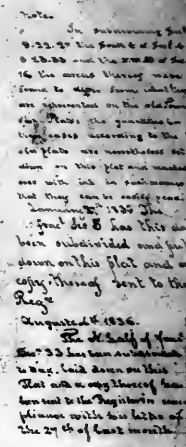 Notes.
In subdividing
8.22.27 the South E of Sec 4
8 28.33 and the N.W. of Sec
16 the areas thereof were
found to differ from what they
are represented on the old Town
ship Plats. The quantities in
these cases according to the
old plats are nevertheless set
down on this plat and marked
over with ink in such manner
that they can be easily read.
1836 The
frac. Sec 5 has this day
been subdivided and put
down on this plat and a
copy thereof sent to the
Regr.
August 4th 1836.
The N. half of fract
Sec. 33 has been subdivided
to day. laid down on this
Plat and a copy thereof has
been sent to the Register in com
pliance with his letter of
the 27th of last month.